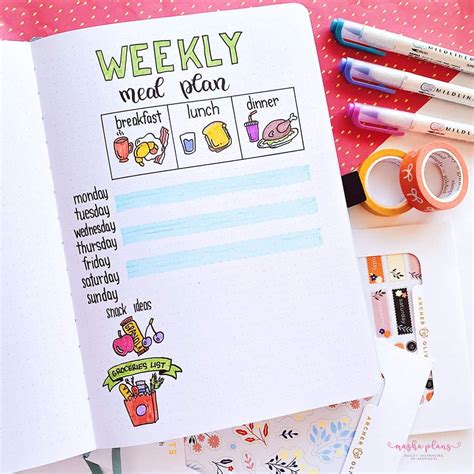 WEEKLY
meal plan
breakfast lunch dinner
monday
tuesday
wednesday
thursday
friday
saturday
sunday
snack ideas
GROCERIES LIST
MILDLINER
MILDLINER
MILDLINER
ARCHER
OLIV
ARCHER
OLIV
masha plans